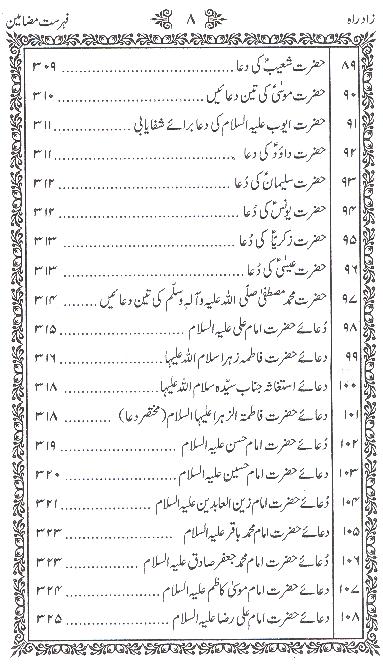 زاد راہ ۸ فہرست مضامین
۸۹ حضرت شعیبؑ کی دعا ........ ۳۰۹
۹۰ حضرت موسٰیؑ کی تین دعائیں ........ ۳۱۰
۹۱ حضرت ایوب علیہ السلام کی دعا برائے شفایابی ........ ۳۱۱
۹۲ حضرت داؤدؑ کی دعا ........ ۳۱۱
۹۳ حضرت سلیمانؑ کی دُعا ........ ۳۱۲
۹۴ حضرت یونسؑ کی دُعا ........ ۳۱۲
۹۵ حضرت زکریاؑ کی دُعا ........ ۳۱۳
۹۶ حضرت عیسیٰؑ کی دُعا ........ ۳۱۳
۹۷ حضرت محمد مصطفیٰ صلّی اللہ علیہ وآلہٖ وسلّم کی تین دعائیں ........ ۳۱۴
۹۸ دُعائے حضرت امام علی علیہ السلام ........ ۳۱۵
۹۹ دعائے حضرت فاطمہ زہرا سلام اللہ علیہا ........ ۳۱۶
۱۰۰ دعائے استغاثہ جناب سیّدہ سلام اللہ علیہا ........ ۳۱۸
۱۰۱ دعائے حضرت فاطمۃ الزہرا علیہا السلام (مختصر دعا) ........ ۳۱۸
۱۰۲ دعائے حضرت امام حسن علیہ السلام ........ ۳۱۹
۱۰۳ دعائے حضرت امام حسین علیہ السلام ........ ۳۲۰
۱۰۴ دُعائے حضرت امام زین العابدین علیہ السلام ........ ۳۲۱
۱۰۵ دعائے حضرت امام محمد باقر علیہ السلام ........ ۳۲۳
۱۰۶ دُعائے حضرت امام محمد جعفر صادق علیہ السلام ........ ۳۲۳
۱۰۷ دعائے حضرت امام موسیٰ کاظم علیہ السلام ........ ۳۲۴
۱۰۸ دعائے حضرت امام علی رضا علیہ السلام ........ ۳۲۵